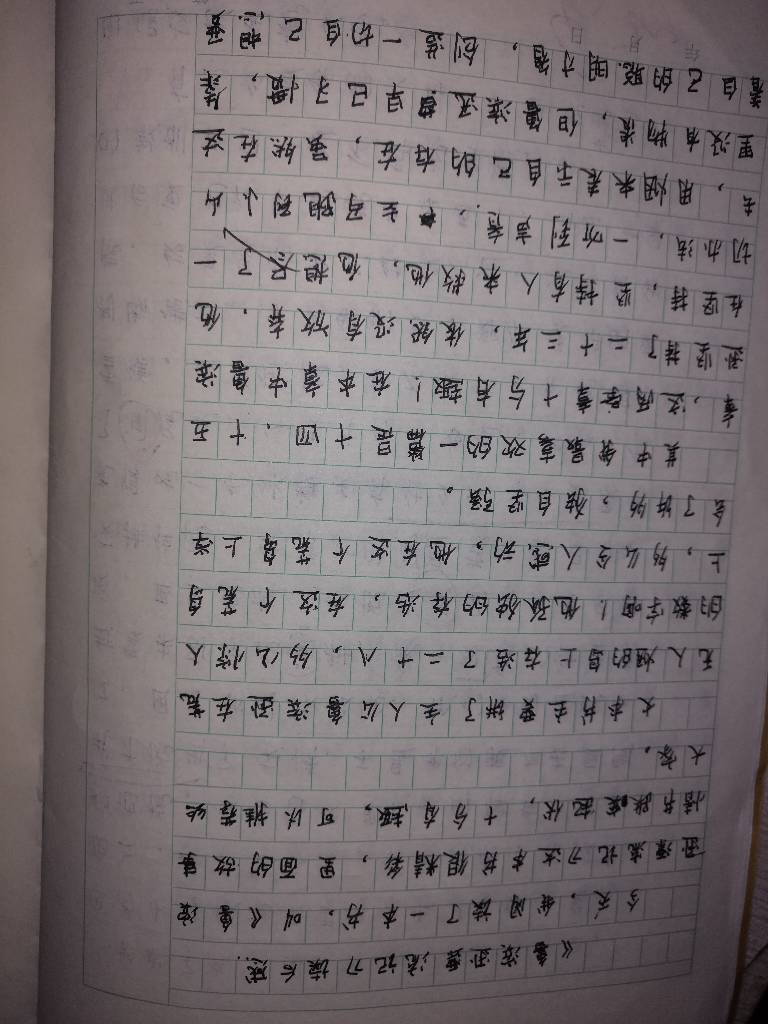 《鲁滨孙漂流记》读后感
今天，我阅读了一本书，叫《鲁滨
孙漂流记》这本书很精彩，里面的故事
情节跌宕起伏，十分有趣，可以推荐给
大家。
本书主要讲了主人公鲁滨孙在荒
无人烟的岛上存活了二十八，多么惊人
的数字啊！他孤独的存活，在这个荒岛
上，多么令人感动，他在这个荒岛上学
会了许多，独自坚强。
其中我最喜欢的一篇是十四、十五
章，这两章十分有趣！在本章中鲁滨
孙坚持了二十三年，依然没有放弃，他
在坚持，坚持有人来救他，他想尽了一
切办法，一听到声音，立马跑到小山
去，用烟来表示自己的存在，虽然在这
里没有物资，但鲁滨逊早已习惯，凭
着自己的聪明才智，创造一切自己想要